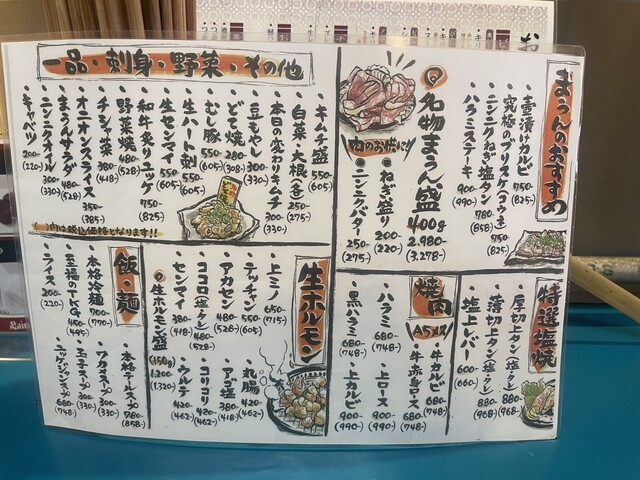 まうんのおすすめ
壺漬けカルビ 750 (825)
究極のブリスケ(コウネ) 750 (825)
ニンニクねぎ塩タン 780 (858)
ハラミステーキ 900 (990)
名物まうん盛 400g 2,980- (3,278-)
肉のお供に!!
ねぎ盛り 200 (220)
ニンニクバター 250- (275-)
一品・刺身・野菜・その他
キムチ盛 550 (605)
白菜・大根(各) 250 (275-)
本日の変わりキムチ 300 (330-)
豆もやし 300 (330-)
どて焼 280- (308-)
むし豚 550- (605-)
生ハート刺 550 (605-)
生センマイ 550 (605-)
和牛炙りユッケ 750- (825)
野菜焼 480 (528)
チシャ菜 380 (418)
オニオンスライス 350 (385-)
まうんサラダ 480 (528)
ニンニクオイル 300 (330)
キャベツ 200- (220-)
( )内は税込価格となります!!
特選塩焼
厚切上タン(塩・タレ) 880- (968-)
薄切上タン(塩・タレ) 880- (968)
塩上レバー 600 (660)
焼肉
A5メス
牛カルビ 680 (748)
牛赤身ロース 680 (748)
ハラミ 680- (748-)
上ロース 900 (990-)
黒ハラミ 680 (748-)
上カルビ 900 (990-)
生ホルモン
上ミノ 650 (715-)
テッチャン 550 (605-)
アカセン 480 (528)
ココロ(塩・タレ) 480 (528-)
センマイ 380 (418)
生ホルモン盛 (150g) 1,200 (1,320-)
丸腸 420 (462-)
アゴ塩 380 (418)
コリコリ 420 (462)
ウルテ 420 (462-)
飯・麺
本格冷麺 700 (770-)
至福のTKG 450 (495-)
ライス 200 (220-)
本格テールスープ 780 (858-)
ワカメスープ 300 (330-)
玉子スープ 300 (330-)